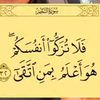 سورة النجم
فَلَا تُزَكُّوٓا۟ أَنفُسَكُمْ ۖ
هُوَ أَعْلَمُ بِمَنِ ٱتَّقَىٰٓ ٣٢